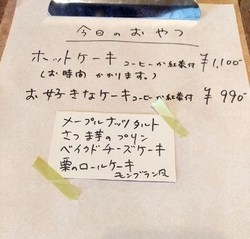 今日のおやつ
ホットケーキ コーヒーか紅茶付 ¥1,100-
(お時間かかります。)
お好きなケーキ コーヒーか紅茶付 ¥990-
メープルナッツタルト
さつま芋のプリン
ベイクドチーズケーキ
栗のロールケーキ
モンブラン風